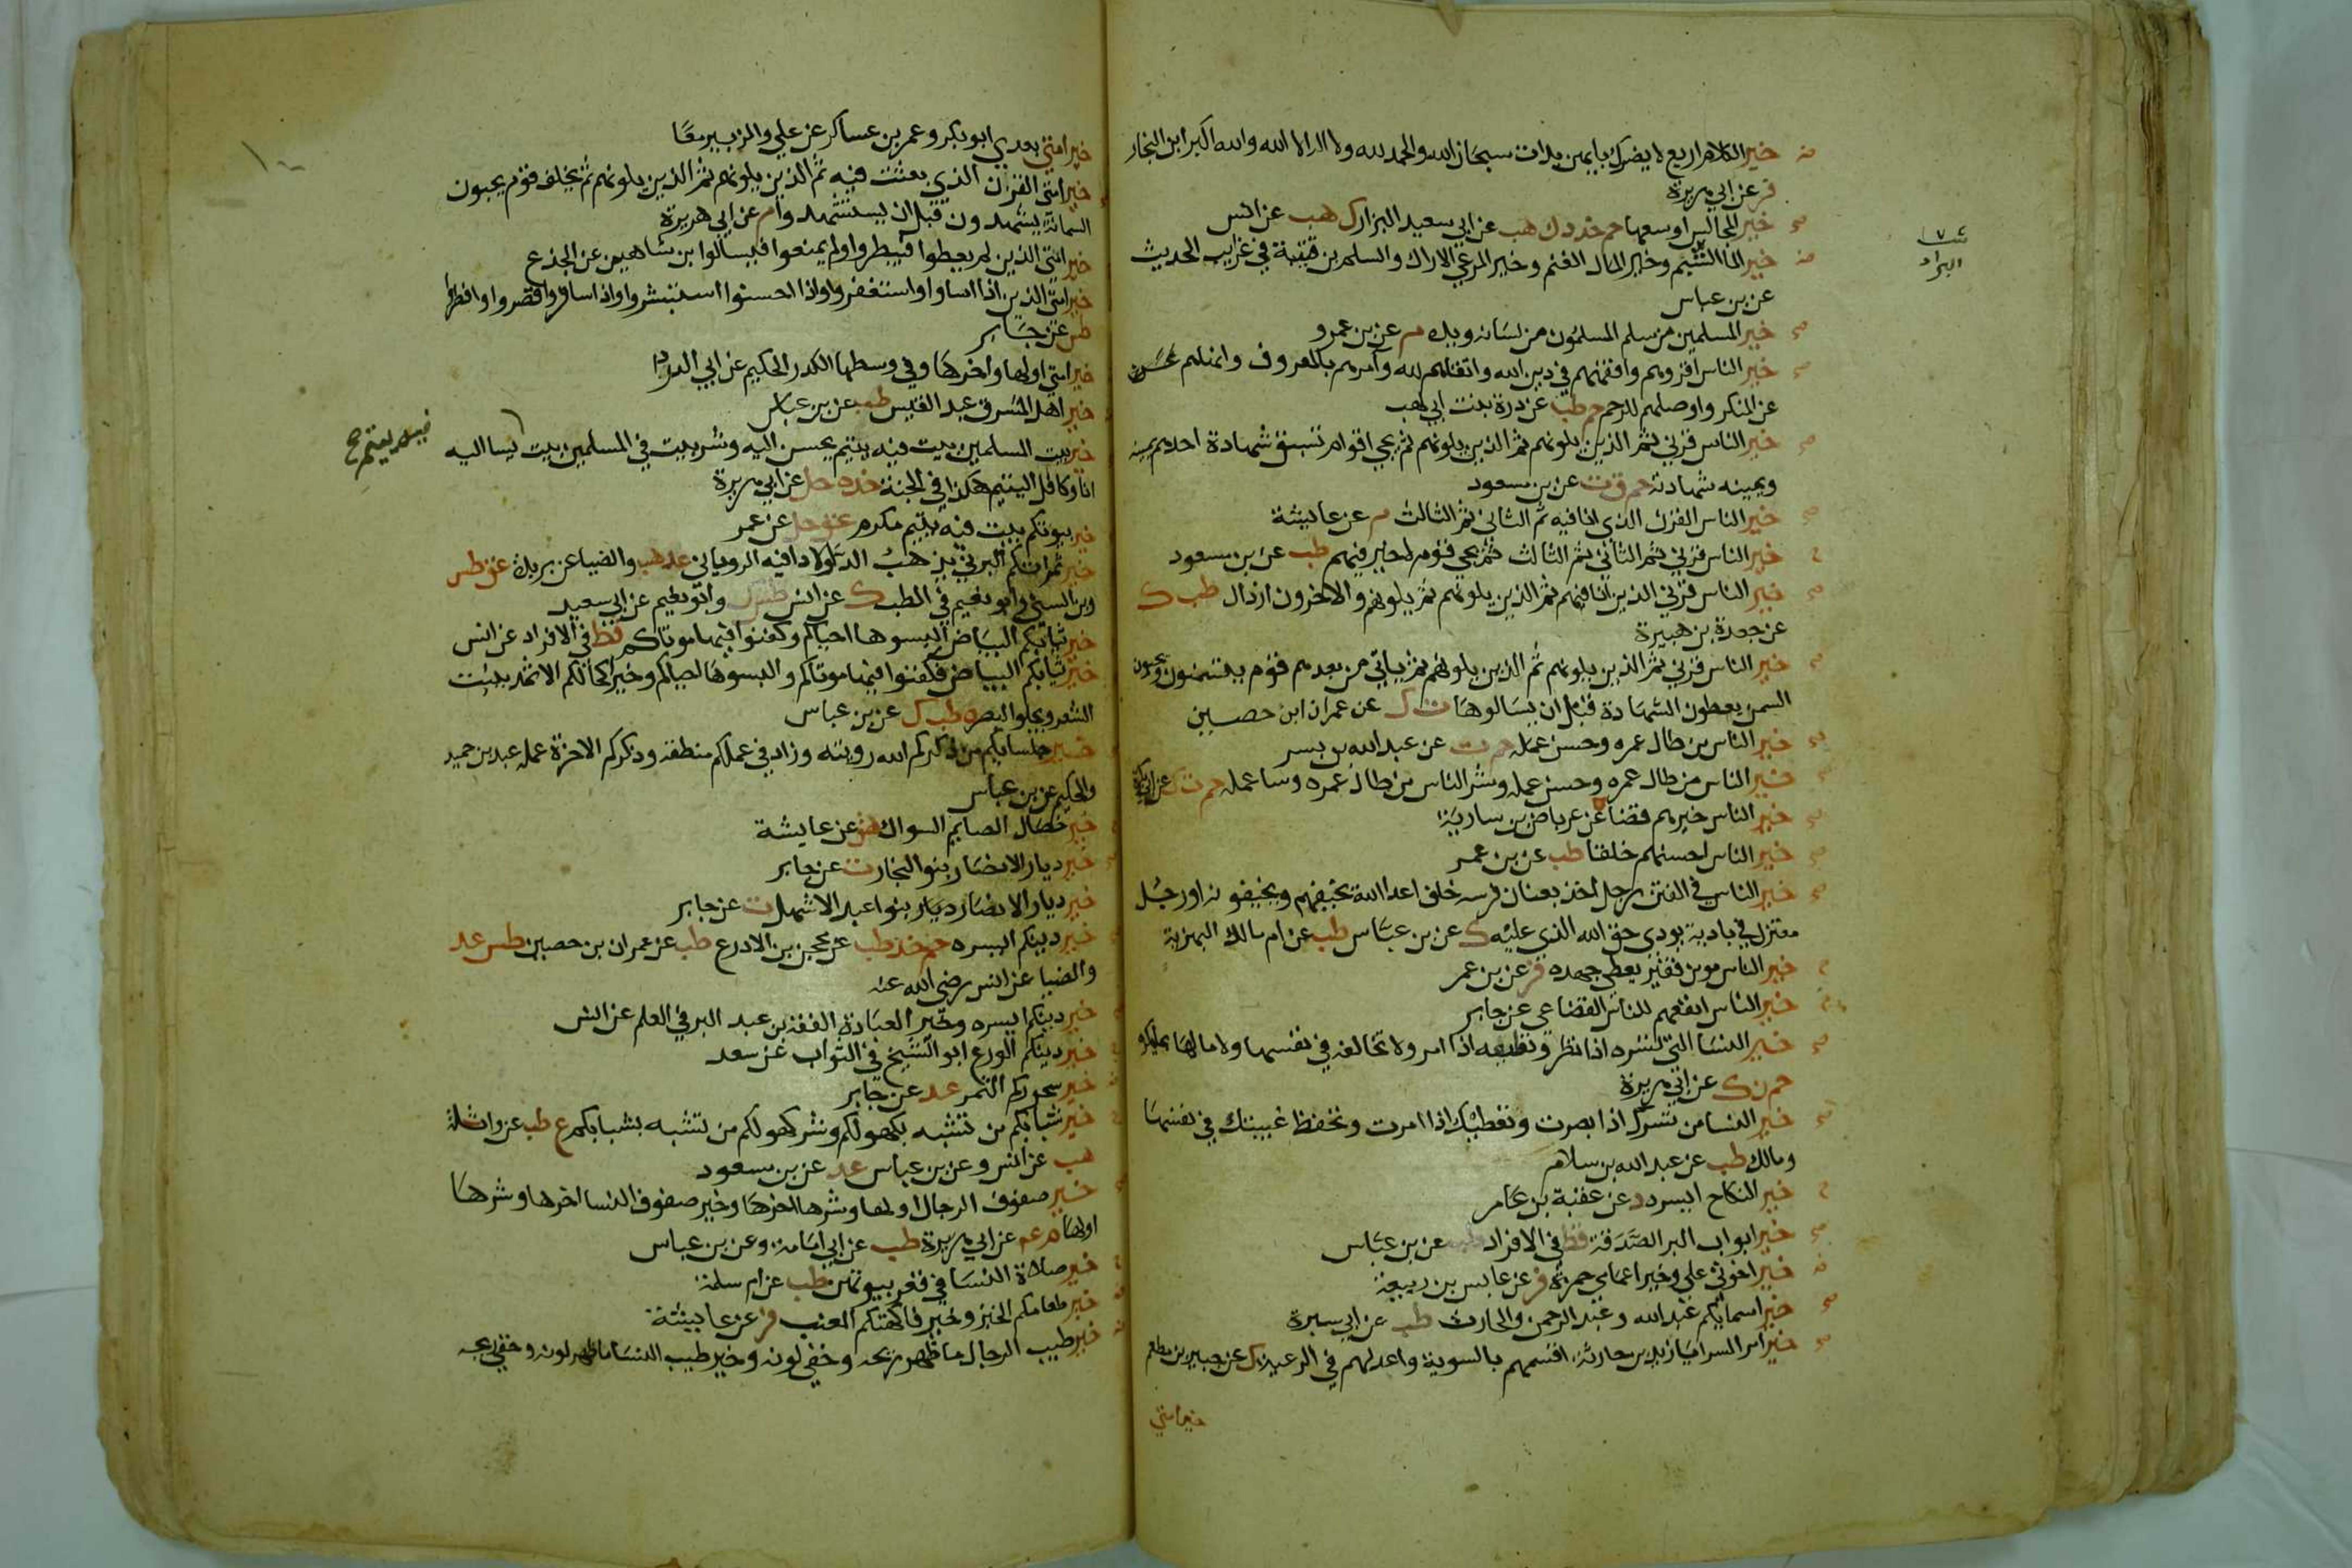 خير الكلام اربع لا يضرك بايهن بدات سبحان الله والحمد لله ولا اله الا الله والله اكبر ابن النجار
فر عن ابي هريرة
خير المجالس اوسعها حم خد د ك هب عن ابي سعيد البزار ك هب عن انس
خير الماء الشبم وخير المال الغنم وخير المرعي الاراك والسلم بن قتيبة في غريب الحديث
عن بن عباس
خير المسلمين من سلم المسلمون من لسانه ويده م عن بن عمرو
خير الناس اقروهم وافقههم في دين الله واتقاهم لله وآمرهم بالمعروف وانهاهم
عن المنكر واوصلهم للرحم حم طب عن درة بنت ابي لهب
خير الناس قرني ثم الذين يلونهم ثم الذين يلونهم ثم يجي اقوام تسبق شهادة احدهم يمينه
ويمينه شهادته حم ق ت عن بن مسعود
خير الناس القرن الذي انا فيه ثم الثاني ثم الثالث م عن عايشة
خير الناس قرني ثم الثاني ثم الثالث ثم يجي قوم لا خير فيهم طب عن بن مسعود
خير الناس قرني الذين انا فيهم ثم الذين يلونهم ثم يلونهم والاخرون ارذال طب ك
عن جعدة بن هبيرة
خير الناس قرني ثم الذين يلونهم ثم الذين يلونهم ثم ياتي من بعدهم قوم يتسمنون ويحبون
السمن يعطون الشهادة قبل ان يسالوها ت ك عن عمران ابن حصين
خير الناس من طال عمره وحسن عمله حم ت عن عبد الله بن بسر
خير الناس من طال عمره وحسن عمله وشر الناس من طال عمره وسا عمله حم ت ك عن ابي بكرة
خير الناس خيرهم قضا ه عن عرباض بن سارية
خير الناس احسنهم خلقا طب عن بن عمر
خير الناس في الفتن رجل اخذ بعنان فرسه خلف اعدا الله يخيفهم ويخيفونه او رجل
معتزل في بادية يودي حق الله الذي عليه ك عن بن عباس طب عن ام مالك البهزية
خير الناس مومن فقير يعطي جهده فر عن بن عمر
خير الناس انفعهم للناس القضاعي عن جابر
خير النسا التي تسره اذا نظر وتطيعه اذا امر ولا تخالفه في نفسها ولا مالها بما يكره
حم ن ك عن ابي هريرة
خير النسا من تسرك اذا ابصرت وتطيعك اذا امرت وتحفظ غيبتك في نفسها
ومالك طب عن عبد الله بن سلام
خير النكاح ايسره د عن عقبة بن عامر
خير ابواب البر الصدقة قط في الافراد طب عن بن عباس
خير اخوتي علي وخير اعمامي حمزة فر عن عابس بن ربيعة
خير اسمايكم عبد الله وعبد الرحمن والحارث طب عن ابي سبرة
خير امرا السرايا زيد بن حارثة اقسمهم بالسوية واعدلهم في الرعية ك عن جبير بن مطعم
خير امتي
خير امتي بعدي ابو بكر وعمر بن عساكر عن علي والزبير معا
خير امتي القرن الذي بعثت فيه ثم الذين يلونهم ثم الذين يلونهم ثم يخلف قوم يحبون
السمانة يشهدون قبل ان يستشهدوا م عن ابي هريرة
خير امتي الذين لم يعطوا فيبطروا ولم يمنعوا فيسالوا بن شاهين عن الجذع
خير امتي الذين اذا اساوا استغفروا واذا احسنوا استبشروا واذا سافروا قصروا وافطروا
طس عن جابر
خير امتي اولها واخرها وفي وسطها الكدر الحكيم عن ابي الدردا
خير اهل المشرق عبد القيس طب عن بن عباس
خير بيت المسلمين بيت فيه يتيم يحسن اليه وشر بيت في المسلمين بيت يسا اليه
فيه يتيم صح
انا وكافل اليتيم هكذا في الجنة خد ه حل عن ابي هريرة
خير بيوتكم بيت فيه يتيم مكرم عق حل عن عمر
خير تمراتكم البرني يذهب الدا ولا دا فيه الروياني عد هب والضيا عن بريدة عق طس
وبن السني وابو نعيم في الطب ك عن انس طس ك وابو نعيم عن ابي سعيد
خير ثيابكم البياض البسوها احياكم وكفنوا فيها موتاكم قط في الافراد عن انس
خير ثيابكم البياض فكفنوا فيها موتاكم والبسوها احياكم وخير اكحالكم الاثمد ينبت
الشعر ويجلو البصر ه طب ك عن بن عباس
خير جلسايكم من ذكركم الله رويته وزاد في عملكم منطقه وذكركم الاخرة عمله عبد بن حميد
والحكيم عن بن عباس
خير خصال الصايم السواك هق عن عايشة
خير ديار الانصار بنو النجار ت عن جابر
خير ديار الانصار ديار بنوا عبد الاشهل ت عن جابر
خير دينكم ايسره حم خد طب عن محجن بن الادرع طب عن عمران بن حصين طس عد
والضيا عن انس رضي الله عنه
خير دينكم ايسره وخير العبادة الفقه بن عبد البر في العلم عن انس
خير دينكم الورع ابو الشيخ في الثواب عن سعد
خير سحوركم التمر عد عن جابر
خير شبابكم من تشبه بكهولكم وشر كهولكم من تشبه بشبابكم ع طب عن واثلة
هب عن انس وعن بن عباس عد عن بن مسعود
خير صفوف الرجال اولها وشرها اخرها وخير صفوف النسا اخرها وشرها
اولها م عم عن ابي هريرة طب عن ابي امامة وعن بن عباس
خير صلاة النسا في قعر بيوتهن طب عن ام سلمة
خير طعامكم الخبز وخير فاكهتكم العنب فر عن عايشة
خير طيب الرجال ما ظهر ريحه وخفي لونه وخير طيب النسا ما ظهر لونه وخفي ريحه